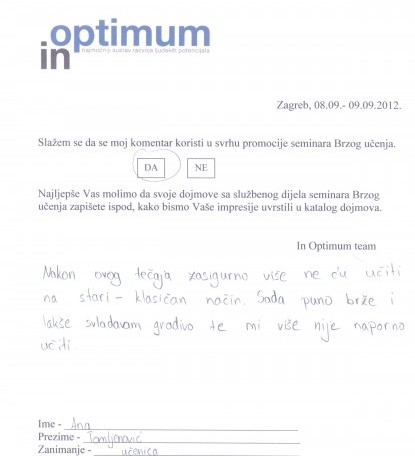 optimum
in
najmoćniji sustav razvoja ljudskih potencijala
Zagreb, 08.09.- 09.09.2012.
Slažem se da se moj komentar koristi u svrhu promocije seminara Brzog učenja.
DA NE
Najljepše Vas molimo da svoje dojmove sa službenog dijela seminara Brzog
učenja zapišete ispod, kako bismo Vaše impresije uvrstili u katalog dojmova.
In Optimum team
Nakon ovog tečaja zasigurno više ne ću učiti
na stari - klasičan način. Sada puno brže i
lakše svladavam gradivo te mi više nije naporno
učiti.
Ime - Ana
Prezime - Tomljenović
Zanimanje - učenica